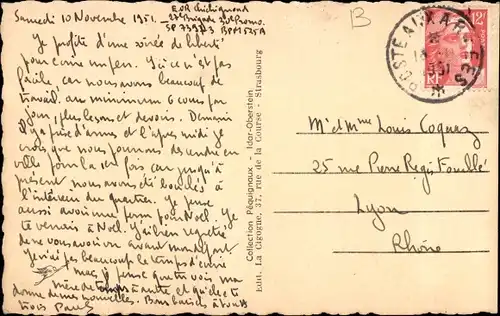 Samedi 10 Novembre 1951.
EOR
27e Brigade 2e Promo.
SP 73973 BPM 525A
B
Je profite d'une soirée de liberté
pour écrire enfin. Ici ce n'est pas
facile, car nous avons beaucoup de
travail, au minimum 6 cours par
jour, plus leçons et devoirs. Demain
il y a prise d'armes et l'après midi je
crois que nous pourrons descendre en
ville pour la 1ère fois car jusqu'à
présent nous avons été bouclés à
l'intérieur du quartier. Je pense
aussi avoir une perm pour Noël. Je
te venais à Noël. J'ai bien regretté
de ne vous avoir vu avant mon départ
Je n'ai pas beaucoup le temps d'écrire
mais je pense que tu vois ma
mère de temps à autre et qu'elle te
donne de mes nouvelles. Bons baisers à vous
trois Paul
Collection Péquignoux - Idar-Oberstein
Edit. La Cigogne, 37, rue de la Course - Strasbourg
POSTE AUX ARMEES
12F
RF
M et Mme Louis Coquaz
25 rue Pierre
Lyon
Rhône